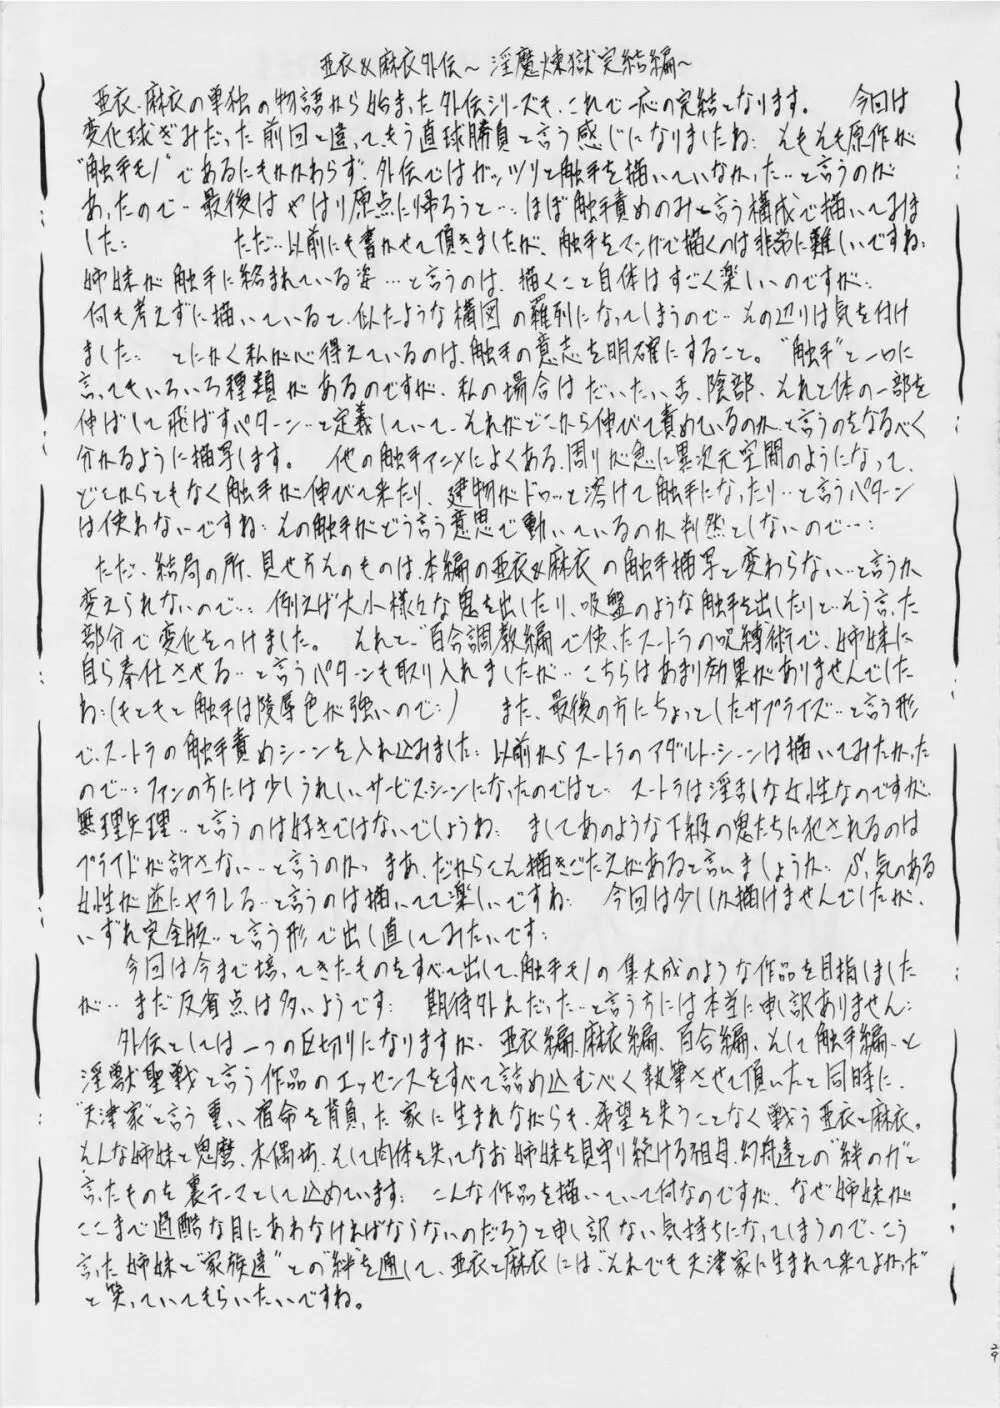 亜衣&麻衣外伝〜淫魔煉獄完結編〜
亜衣、麻衣の単独の物語から始まった外伝シリーズも、これで一応の完結となります。 今回は
変化球ぎみだった前回と違ってもう直球勝負と言う感じになりましたね… そもそも原作が
"触手モノ"であるにもかかわらず、外伝ではガッツリと触手を描いていなかった…と言うのが
あったので…最後はやはり原点に帰ろうと…ほぼ触手責めのみと言う構成で描いてみま
した… ただ…以前にも書かせて頂きましたが、触手をマンガで描くのは非常に難しいですね…
姉妹が触手に絡まれている姿…と言うのは、描くこと自体はすごく楽しいのですが…
何も考えずに描いていると、似たような構図の羅列になってしまうので…その辺りは気を付け
ました… とにかく私が心得ているのは、触手の意志を明確にすること。"触手"と一口に
言ってもいろいろ種類があるのですが、私の場合はだいたい舌、陰部、それと体の一部を
伸ばして飛ばすパターン…と定義していて、それがどこから伸びて責めているのか…と言うのをなるべく
分かるように描写します。 他の触手アニメによくある、周りが急に異次元空間のようになって、
どこからともなく触手が伸びて来たり、建物がドロッと溶けて触手になったり…と言うパターン
は使わないですね…その触手がどう言う意思で動いているのか判然としないので…
ただ、結局の所、見せ方そのものは、本編の亜衣&麻衣の触手描写と変わらない…と言うか
変えられないので… 例えば大小様々な鬼を出したり、吸盤のような触手を出したりと…そう言った
部分で変化をつけました。 それと、"百合調教編"で使ったスートラの呪縛術で、姉妹に
自ら奉仕させる…と言うパターンも取り入れましたが…こちらはあまり効果がありませんでした
ね…(もともと触手は陵辱色が強いので…) また、最後の方にちょっとしたサプライズ…と言う形
で、スートラの触手責めシーンを入れ込みました… 以前からスートラのアダルト・シーンは描いてみたかった
ので… ファンの方には少しうれしいサービス・シーンになったのではと… スートラは淫乱な女性なのですが、
無理矢理…と言うのは好きではないでしょうね… ましてあのような下級の鬼たちに犯されるのは
プライドが許さない…と言うのか… まあ、だからこそ描きごたえがあると言いましょうか… S気のある
女性が逆にヤラレる…と言うのは描いてて楽しいですね… 今回は少ししか描けませんでしたが、
いずれ完全版…と言う形で出し直してみたいです…
今回は今まで培ってきたものをすべて出して、触手モノの集大成のような作品を目指しました
が… まだ反省点は多いようです… 期待外れだった…と言う方には本当に申し訳ありません…
外伝としては一つの区切りになりますが、亜衣編、麻衣編、百合編、そして触手編…と
淫獣聖戦と言う作品のエッセンスをすべて詰め込むべく執筆させて頂いたと同時に、
"天津家"と言う重い宿命を背負った家に生まれながらも、希望を失うことなく戦う亜衣と麻衣。
そんな姉妹と鬼麿、木偶坊、そして肉体を失ってなお姉妹を見守り続ける祖母、幻舟達との"絆の力"と
言ったものを裏テーマとして込めています… こんな作品を描いていて何なのですが、なぜ姉妹が
ここまで過酷な目にあわなければならないのだろうと申し訳ない気持ちになってしまうので、こう
言った姉妹と"家族達"との"絆"を通して、亜衣と麻衣には"それでも天津家に生まれて来てよかった"
と笑っていてもらいたいですね。
29